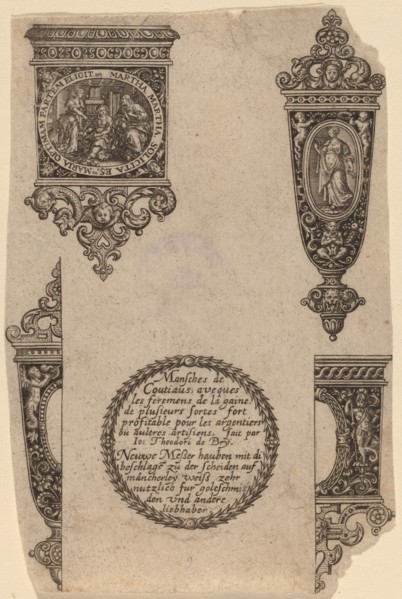 MARTHA MARTHA SOLICITA ES MARIA OPTIMAM PARTEM ELIGIT
Mansches de
Coutiaus, aveques
les feremens de la gaine,
de plusieurs sortes fort
profitable pour les argentiers
ou aultres artisiens. Fait par
Io: Theodori de Bry.
Neuwe Messer hauben mit di
beschlage zu der scheiden auf
mancherley weiss zehr
nutzlich fur goltschmi
den vnd andere
liebhaber